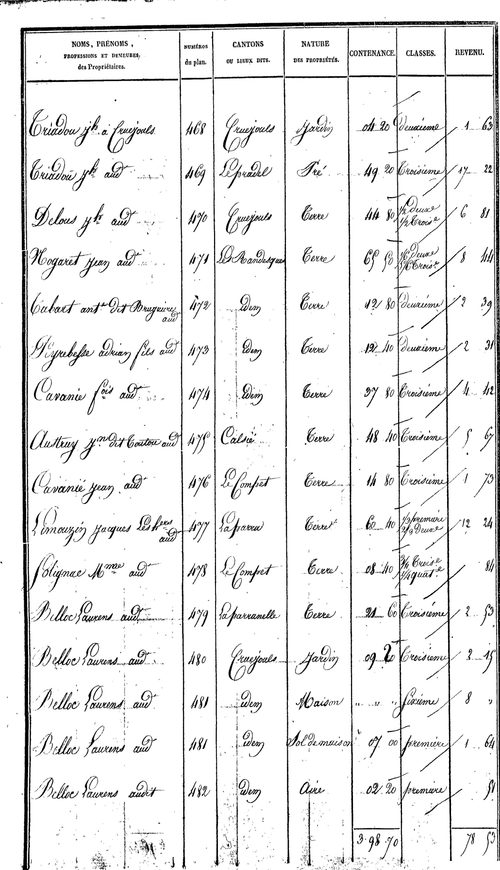 NOMS, PRÉNOMS, PROFESSIONS ET DEMEURES, des Propriétaires. NUMÉROS du plan. CANTONS OU LIEUX DITS. NATURE DES PROPRIÉTÉS. CONTENANCE. CLASSES. REVENU.
Triadou jh. à Cruejouls 468 Cruejouls Jardin 04 20 deuxième 1 63
Triadou jh. aud 469 Le pradel Pré 49 20 Croisième 17 22
Delous aud 470 Cruejouls Terre 44 80 1/2 deuxe 1/2 Croise 6 81
Nogaret jean aud 471 Randesque Terre 65 deuxe Croise 8 44
Cabart ant. dit Brugueire aud 472 idem Terre 12 80 deuxième 2 39
Peyrebesse adrian fils aud 473 idem Terre 12 40 deuxième 2 31
Cavanié fois aud 474 idem Terre 37 80 Croisième 4 42
Austruy jn dit aud 475 Calsié Terre 48 40 Croisième 5 67
Cavanié jean aud 476 Le Compet Terre 14 80 Croisième 1 73
Limouzin jacques Les hers aud 477 La parra Terre 60 40 1/2 premiere 1/2 deuxe 12 24
Solignac Mme aud 478 Le Compet Terre 08 40 Croise quate 84
Belloc Laurens aud 479 La parranelle Terre 21 60 Croisième 2 53
Belloc Laurens aud 480 Cruejouls Jardin 09 20 Croisième 2 15
Belloc Laurens aud 481 idem Maison " " " Sixième 8 "
Belloc Laurens aud 481 idem Sol de maison 07 00 première 1 64
Belloc Laurens audit 482 idem Aire 02 20 première 51
3 98 70 78 53